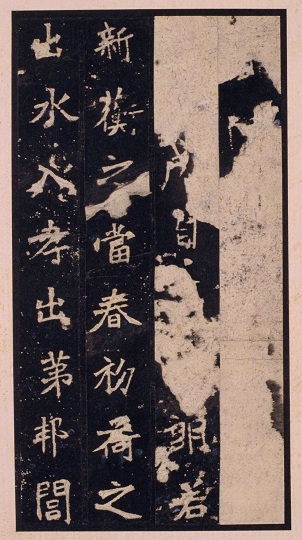 自若
新蘅之當春初荷之
出水入孝出苐邦閭